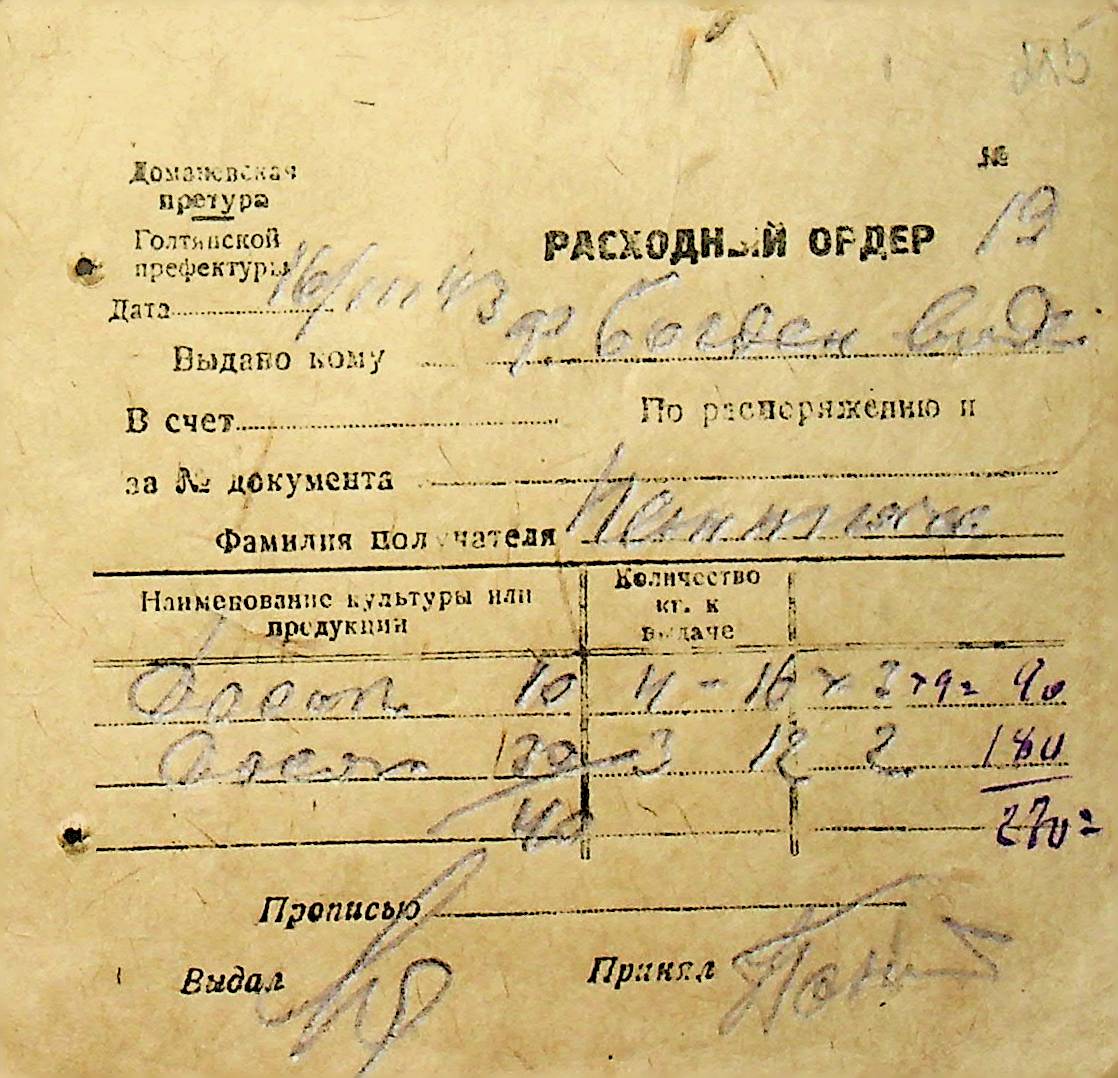 215
№
Доманевская
претура
Голтянской
префектуры
РАСХОДНЫЙ ОРДЕР 19
Дата 16/III 43
Выдано кому
В счет По распоряжению и
за № документа
Фамилия получателя
Наименование культуры или продукции
Количество кг. к выдаче
Досок 10 4 - 16 × 3 × 9 = 90
Досок 3 12 2 180
40 270 =
Прописью
Выдал Принял